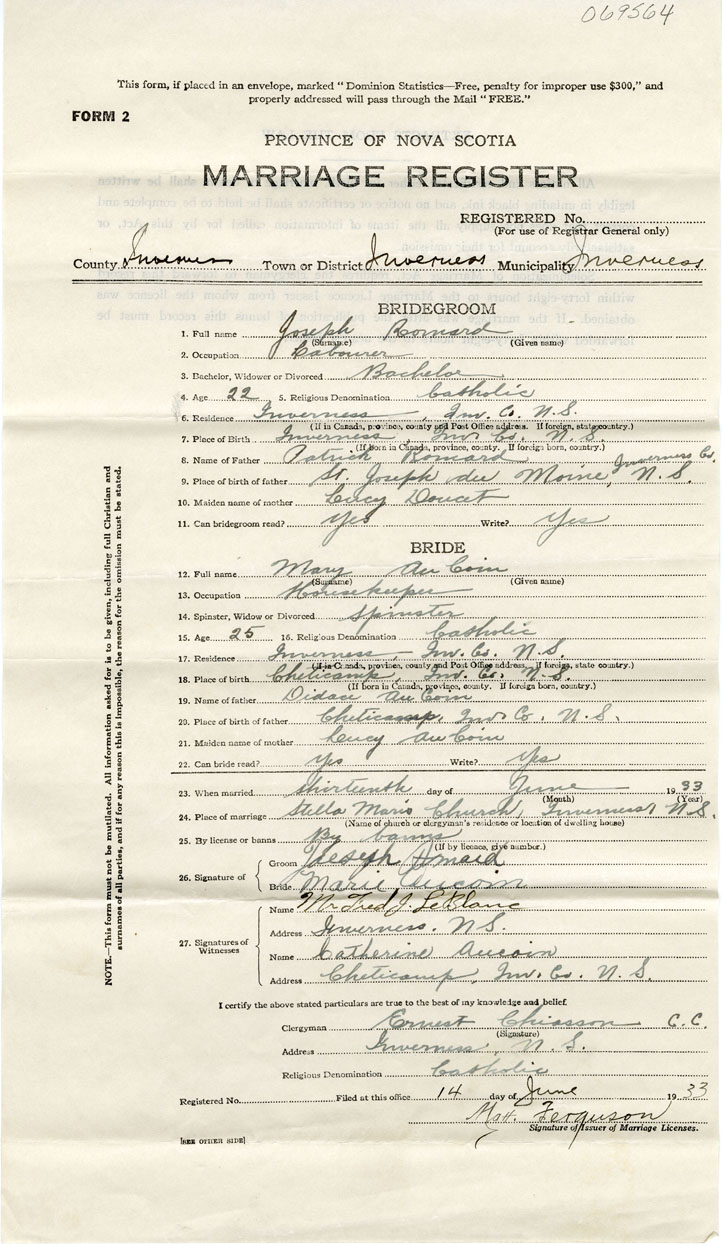 069564
This form, if placed in an envelope, marked "Dominion Statistics—Free, penalty for improper use $300," and
properly addressed will pass through the Mail "FREE."
FORM 2
PROVINCE OF NOVA SCOTIA
MARRIAGE REGISTER
REGISTERED No.
(For use of Registrar General only)
County Inverness Town or District Inverness Municipality Inverness
BRIDEGROOM
1. Full name Joseph Romard
(Surname) (Given name)
2. Occupation Labourer
3. Bachelor, Widower or Divorced Bachelor
4. Age 22 5. Religious Denomination Catholic
6. Residence Inverness, Inv. Co. N.S.
(If in Canada, province, county and Post Office address. If foreign, state country.)
7. Place of Birth Inverness, Inv. Co. N. S.
(If born in Canada, province, county. If foreign born, country.)
8. Name of Father Patrick Romard
9. Place of birth of father St. Joseph du Moine, Inverness Co. N. S.
10. Maiden name of mother Lucy Doucet
11. Can bridegroom read? Yes Write? Yes
BRIDE
12. Full name Mary Au Coin
(Surname) (Given name)
13. Occupation Housekeeper
14. Spinster, Widow or Divorced Spinster
15. Age 25 16. Religious Denomination Catholic
17. Residence Inverness, Inv. Co. N.S.
(If in Canada, province, county and Post Office address. If foreign, state country.)
18. Place of birth Cheticamp, Inv. Co. N. S.
(If born in Canada, province, county. If foreign born, country.)
19. Name of father Didace Au Coin
20. Place of birth of father Cheticamp, Inv. Co. N. S.
21. Maiden name of mother Lucy Au Coin
22. Can bride read? Yes Write? Yes
23. When married thirteenth day of June 1933
(Month) (Year)
24. Place of marriage Stella Maris Church, Inverness, N.S.
(Name of church or clergyman's residence or location of dwelling house)
25. By license or banns By banns
(If by licence, give number.)
26. Signature of
Groom Joseph
Bride Marie Aucoin
27. Signatures of Witnesses
Name Mr Fred J. LeBlanc
Address Inverness. N.S.
Name Catherine Aucoin
Address Cheticamp, Inv. Co. N. S.
I certify the above stated particulars are true to the best of my knowledge and belief.
Clergyman Ernest Chiasson C. C.
(Signature)
Address Inverness, N. S.
Religious Denomination Catholic
Registered No. Filed at this office 14 day of June 1933
Ferguson
Signature of Issuer of Marriage Licenses.
[SEE OTHER SIDE]
NOTE.—This form must not be mutilated. All information asked for is to be given, including full Christian and
surnames of all parties, and if for any reason this is impossible, the reason for the omission must be stated.